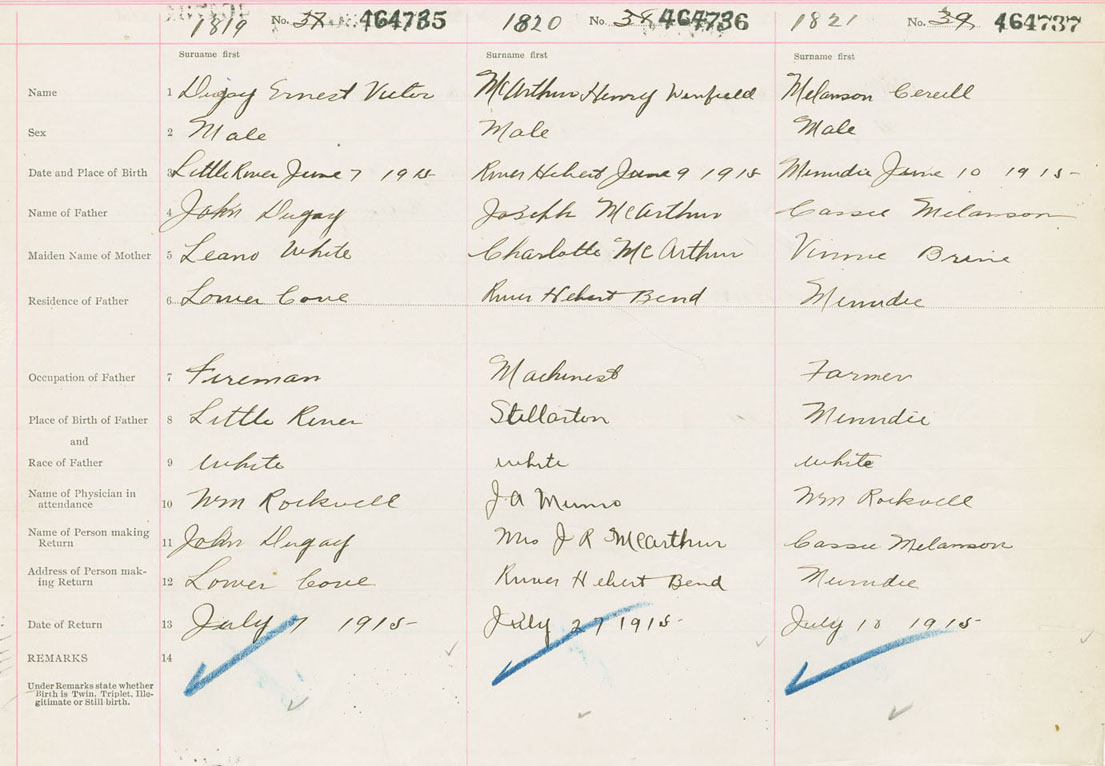 1819 No. 37 464735 1820 No. 38 464736 1821 No. 39 464737
Surname first Surname first Surname first
Name 1 Dugay Ernest Victor McArthur Henry Winfield Melanson Cereill
Sex 2 Male Male Male
Date and Place of Birth 3 Little River June 7 1915 River Hebert June 9 1915 Minudie June 10 1915
Name of Father 4 John Dugay Joseph McArthur Cassie Melanson
Maiden Name of Mother 5 Leano White Charlotte McArthur Vinnie Brine
Residence of Father 6 Lower Cove River Hebert Bend Minudie
Occupation of Father 7 Fireman Machinest Farmer
Place of Birth of Father 8 Little River Stellarton Minudie
and
Race of Father 9 White white white
Name of Physician in
attendance 10 Wm Rockwell J A Munro Wm Rockwell
Name of Person making
Return 11 John Dugay Mrs J R McArthur Cassie Melanson
Address of Person mak-
ing Return 12 Lower Cove River Hebert Bend Minudie
Date of Return 13 July 7 1915 July 27 1915 July 10 1915
REMARKS 14
Under Remarks state whether
Birth is Twin, Triplet, Ille-
gitimate or Still-birth.